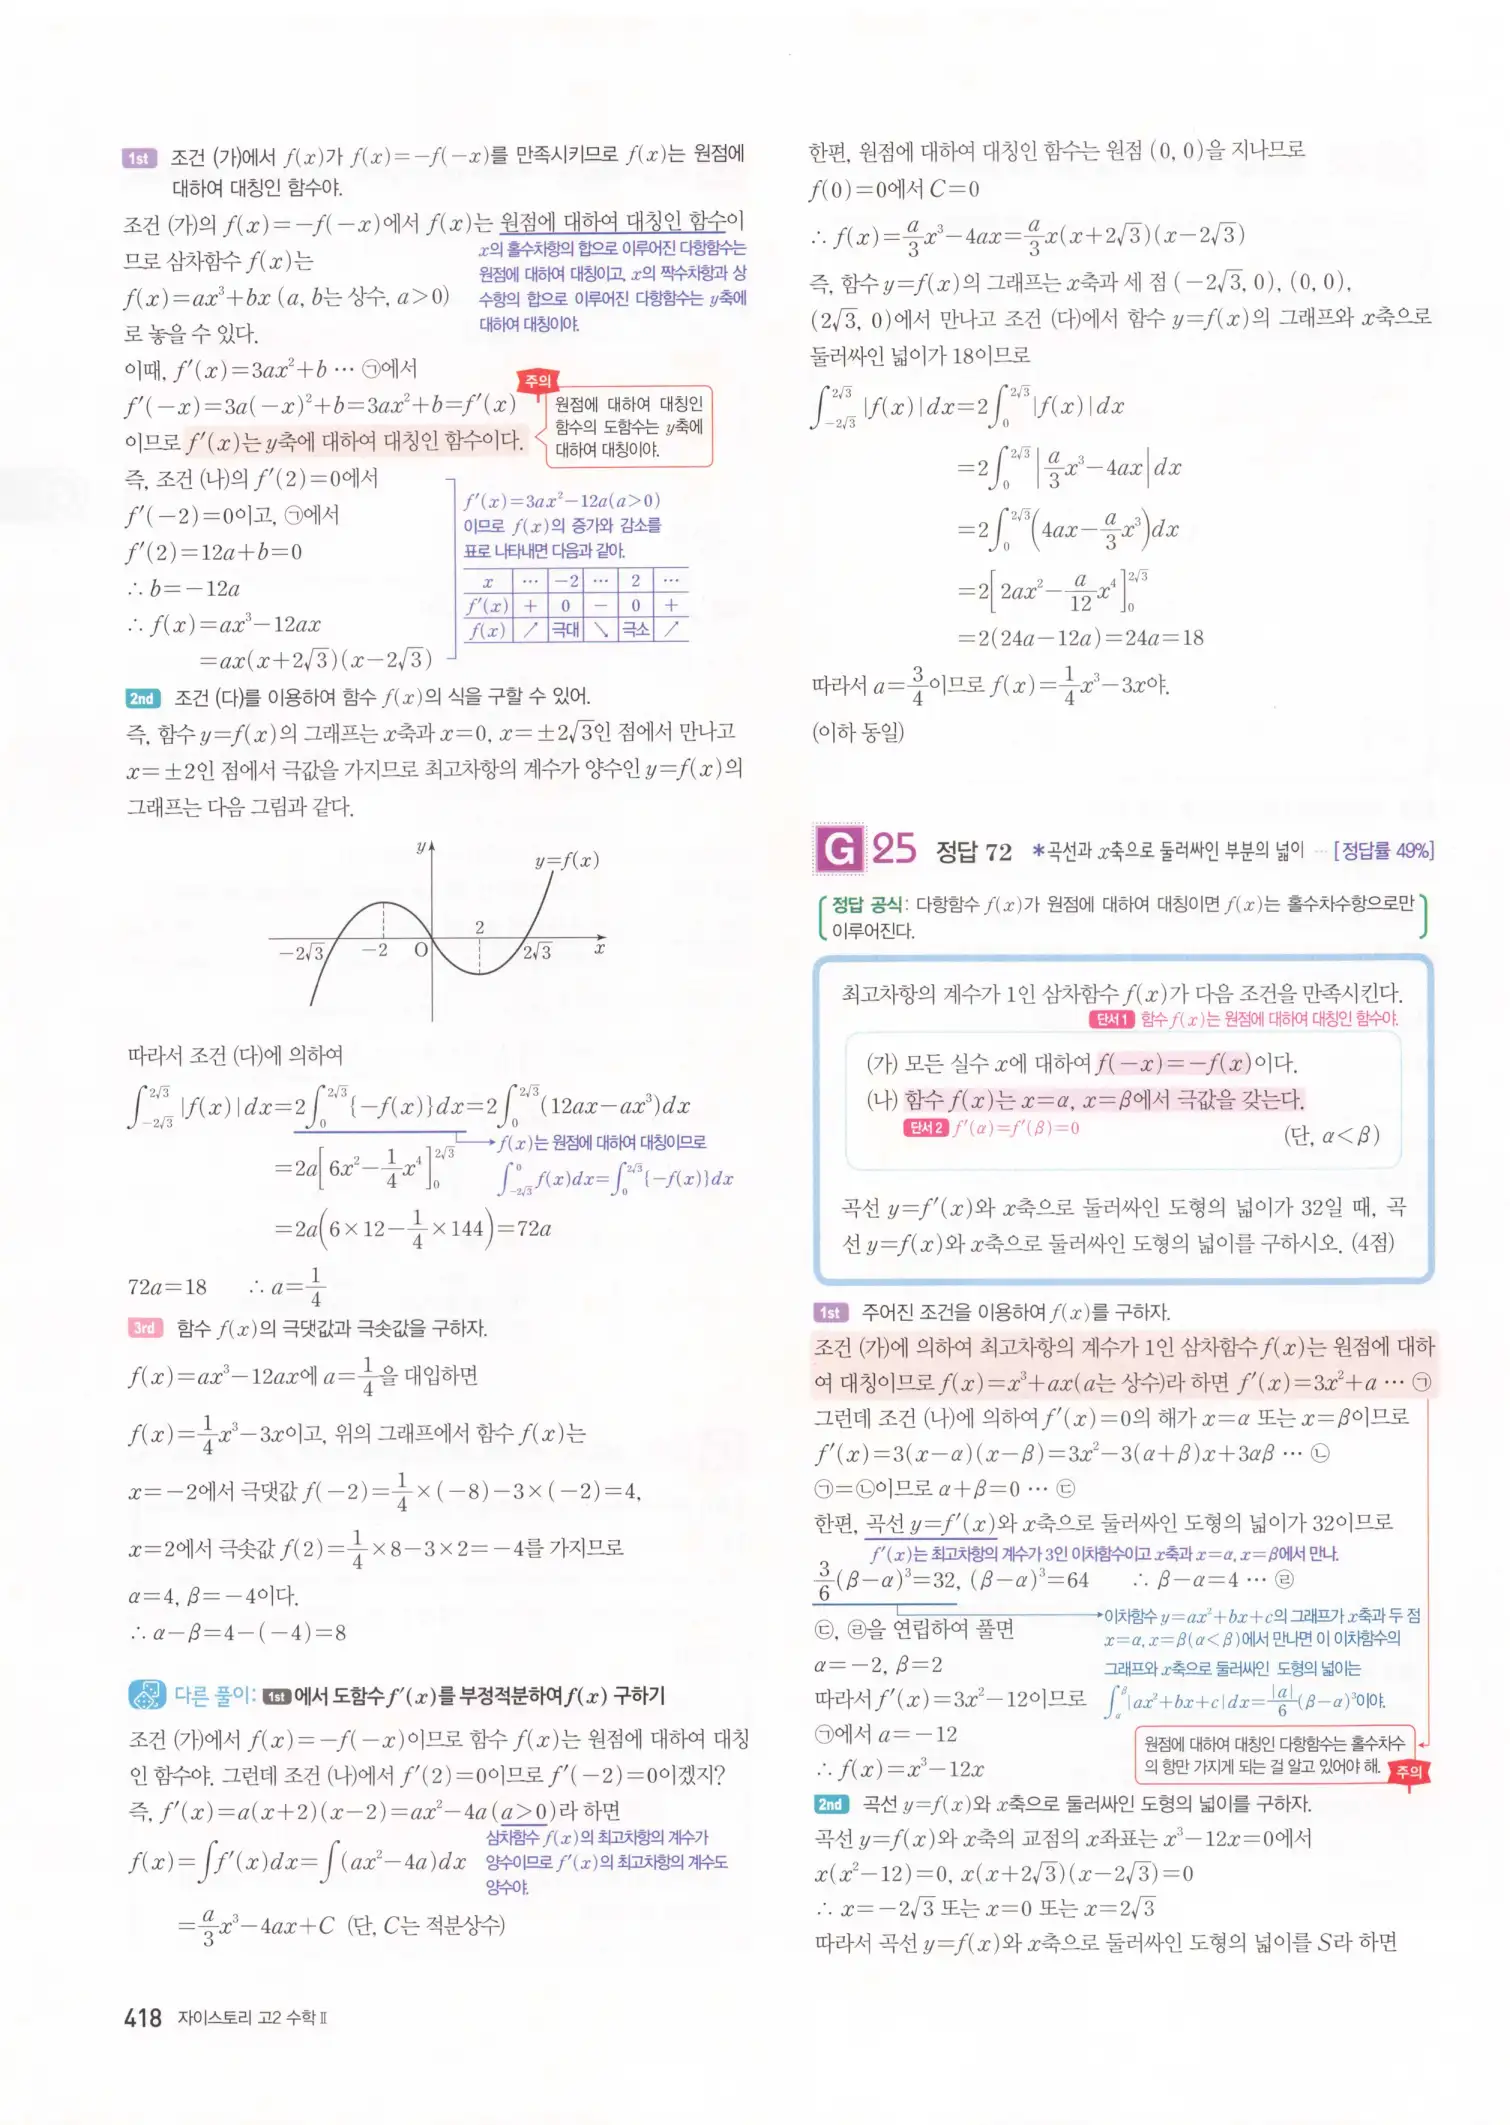 1st 조건 (가)에서 f(x)가 f(x)=-f(-x)를 만족시키므로 f(x)는 원점에
대하여 대칭인 함수야.
조건 (가)의 f(x)=-f(-x)에서 f(x)는 원점에 대하여 대칭인 함수이
므로 삼차함수 f(x)는
f(x)=ax³+bx (a, b는 상수, a>0)
로 놓을 수 있다.
x의 홀수차항의 합으로 이루어진 다항함수는
원점에 대하여 대칭이고, x의 짝수차항과 상
수항의 합으로 이루어진 다항함수는 y축에
대하여 대칭이야.
이때, f'(x)=3ax²+b … ㉠에서
f'(-x)=3a(-x)²+b=3ax²+b=f'(x)
이므로 f'(x)는 y축에 대하여 대칭인 함수이다.
주의
원점에 대하여 대칭인
함수의 도함수는 y축에
대하여 대칭이야.
즉, 조건 (나)의 f'(2)=0에서
f'(-2)=0이고, ㉠에서
f'(2)=12a+b=0
∴ b=-12a
∴ f(x)=ax³-12ax
=ax(x+2√3)(x-2√3)
f'(x)=3ax²-12a(a>0)
이므로 f(x)의 증가와 감소를
표로 나타내면 다음과 같아.
x … -2 … 2 …
f'(x) + 0 - 0 +
f(x) ↗ 극대 ↘ 극소 ↗
2nd 조건 (다)를 이용하여 함수 f(x)의 식을 구할 수 있어.
즉, 함수 y=f(x)의 그래프는 x축과 x=0, x=±2√3인 점에서 만나고
x=±2인 점에서 극값을 가지므로 최고차항의 계수가 양수인 y=f(x)의
그래프는 다음 그림과 같다.
y
y=f(x)
-2√3 -2 O 2 2√3 x
따라서 조건 (다)에 의하여
∫_{-2√3}^{2√3} |f(x)|dx=2∫_0^{2√3} {-f(x)}dx=2∫_0^{2√3} (12ax-ax³)dx
=2a[6x²-1/4x⁴]_0^{2√3}
f(x)는 원점에 대하여 대칭이므로
∫_{-2√3}^0 f(x)dx=∫_0^{2√3} {-f(x)}dx
=2a(6×12-1/4×144)=72a
72a=18 ∴ a=1/4
3rd 함수 f(x)의 극댓값과 극솟값을 구하자.
f(x)=ax³-12ax에 a=1/4을 대입하면
f(x)=1/4x³-3x이고, 위의 그래프에서 함수 f(x)는
x=-2에서 극댓값 f(-2)=1/4×(-8)-3×(-2)=4,
x=2에서 극솟값 f(2)=1/4×8-3×2=-4를 가지므로
α=4, β=-4이다.
∴ α-β=4-(-4)=8
다른 풀이: 1st에서 도함수 f'(x)를 부정적분하여 f(x) 구하기
조건 (가)에서 f(x)=-f(-x)이므로 함수 f(x)는 원점에 대하여 대칭
인 함수야. 그런데 조건 (나)에서 f'(2)=0이므로 f'(-2)=0이겠지?
즉, f'(x)=a(x+2)(x-2)=ax²-4a(a>0)라 하면
삼차함수 f(x)의 최고차항의 계수가
양수이므로 f'(x)의 최고차항의 계수도
양수야.
f(x)=∫f'(x)dx=∫(ax²-4a)dx
=a/3x³-4ax+C (단, C는 적분상수)
418 자이스토리 고2 수학Ⅱ
한편, 원점에 대하여 대칭인 함수는 원점 (0, 0)을 지나므로
f(0)=0에서 C=0
∴ f(x)=a/3x³-4ax=a/3x(x+2√3)(x-2√3)
즉, 함수 y=f(x)의 그래프는 x축과 세 점 (-2√3, 0), (0, 0),
(2√3, 0)에서 만나고 조건 (다)에서 함수 y=f(x)의 그래프와 x축으로
둘러싸인 넓이가 18이므로
∫_{-2√3}^{2√3} |f(x)|dx=2∫_0^{2√3} |f(x)|dx
=2∫_0^{2√3} |a/3x³-4ax|dx
=2∫_0^{2√3} (4ax-a/3x³)dx
=2[2ax²-a/12x⁴]_0^{2√3}
=2(24a-12a)=24a=18
따라서 a=3/4이므로 f(x)=1/4x³-3x야.
(이하 동일)
G 25 정답 72 *곡선과 x축으로 둘러싸인 부분의 넓이 … [정답률 49%]
정답 공식: 다항함수 f(x)가 원점에 대하여 대칭이면 f(x)는 홀수차수항으로만
이루어진다.
최고차항의 계수가 1인 삼차함수 f(x)가 다음 조건을 만족시킨다.
단서1 함수 f(x)는 원점에 대하여 대칭인 함수야.
(가) 모든 실수 x에 대하여 f(-x)=-f(x)이다.
(나) 함수 f(x)는 x=α, x=β에서 극값을 갖는다.
단서2 f'(α)=f'(β)=0 (단, α<β)
곡선 y=f'(x)와 x축으로 둘러싸인 도형의 넓이가 32일 때, 곡
선 y=f(x)와 x축으로 둘러싸인 도형의 넓이를 구하시오. (4점)
1st 주어진 조건을 이용하여 f(x)를 구하자.
조건 (가)에 의하여 최고차항의 계수가 1인 삼차함수 f(x)는 원점에 대하
여 대칭이므로 f(x)=x³+ax(a는 상수)라 하면 f'(x)=3x²+a … ㉠
그런데 조건 (나)에 의하여 f'(x)=0의 해가 x=α 또는 x=β이므로
f'(x)=3(x-α)(x-β)=3x²-3(α+β)x+3αβ … ㉡
㉠=㉡이므로 α+β=0 … ㉢
한편, 곡선 y=f'(x)와 x축으로 둘러싸인 도형의 넓이가 32이므로
f'(x)는 최고차항의 계수가 3인 이차함수이고 x축과 x=α, x=β에서 만나.
3/6(β-α)³=32, (β-α)³=64 ∴ β-α=4 … ㉣
㉢, ㉣을 연립하여 풀면
α=-2, β=2
따라서 f'(x)=3x²-12이므로
㉠에서 a=-12
∴ f(x)=x³-12x
이차함수 y=ax²+bx+c의 그래프가 x축과 두 점
x=α, x=β(α<β)에서 만나면 이 이차함수의
그래프와 x축으로 둘러싸인 도형의 넓이는
∫_α^β |ax²+bx+c|dx=|a|/6(β-α)³이야.
원점에 대하여 대칭인 다항함수는 홀수차수
의 항만 가지게 되는 걸 알고 있어야 해.
주의
2nd 곡선 y=f(x)와 x축으로 둘러싸인 도형의 넓이를 구하자.
곡선 y=f(x)와 x축의 교점의 x좌표는 x³-12x=0에서
x(x²-12)=0, x(x+2√3)(x-2√3)=0
∴ x=-2√3 또는 x=0 또는 x=2√3
따라서 곡선 y=f(x)와 x축으로 둘러싸인 도형의 넓이를 S라 하면